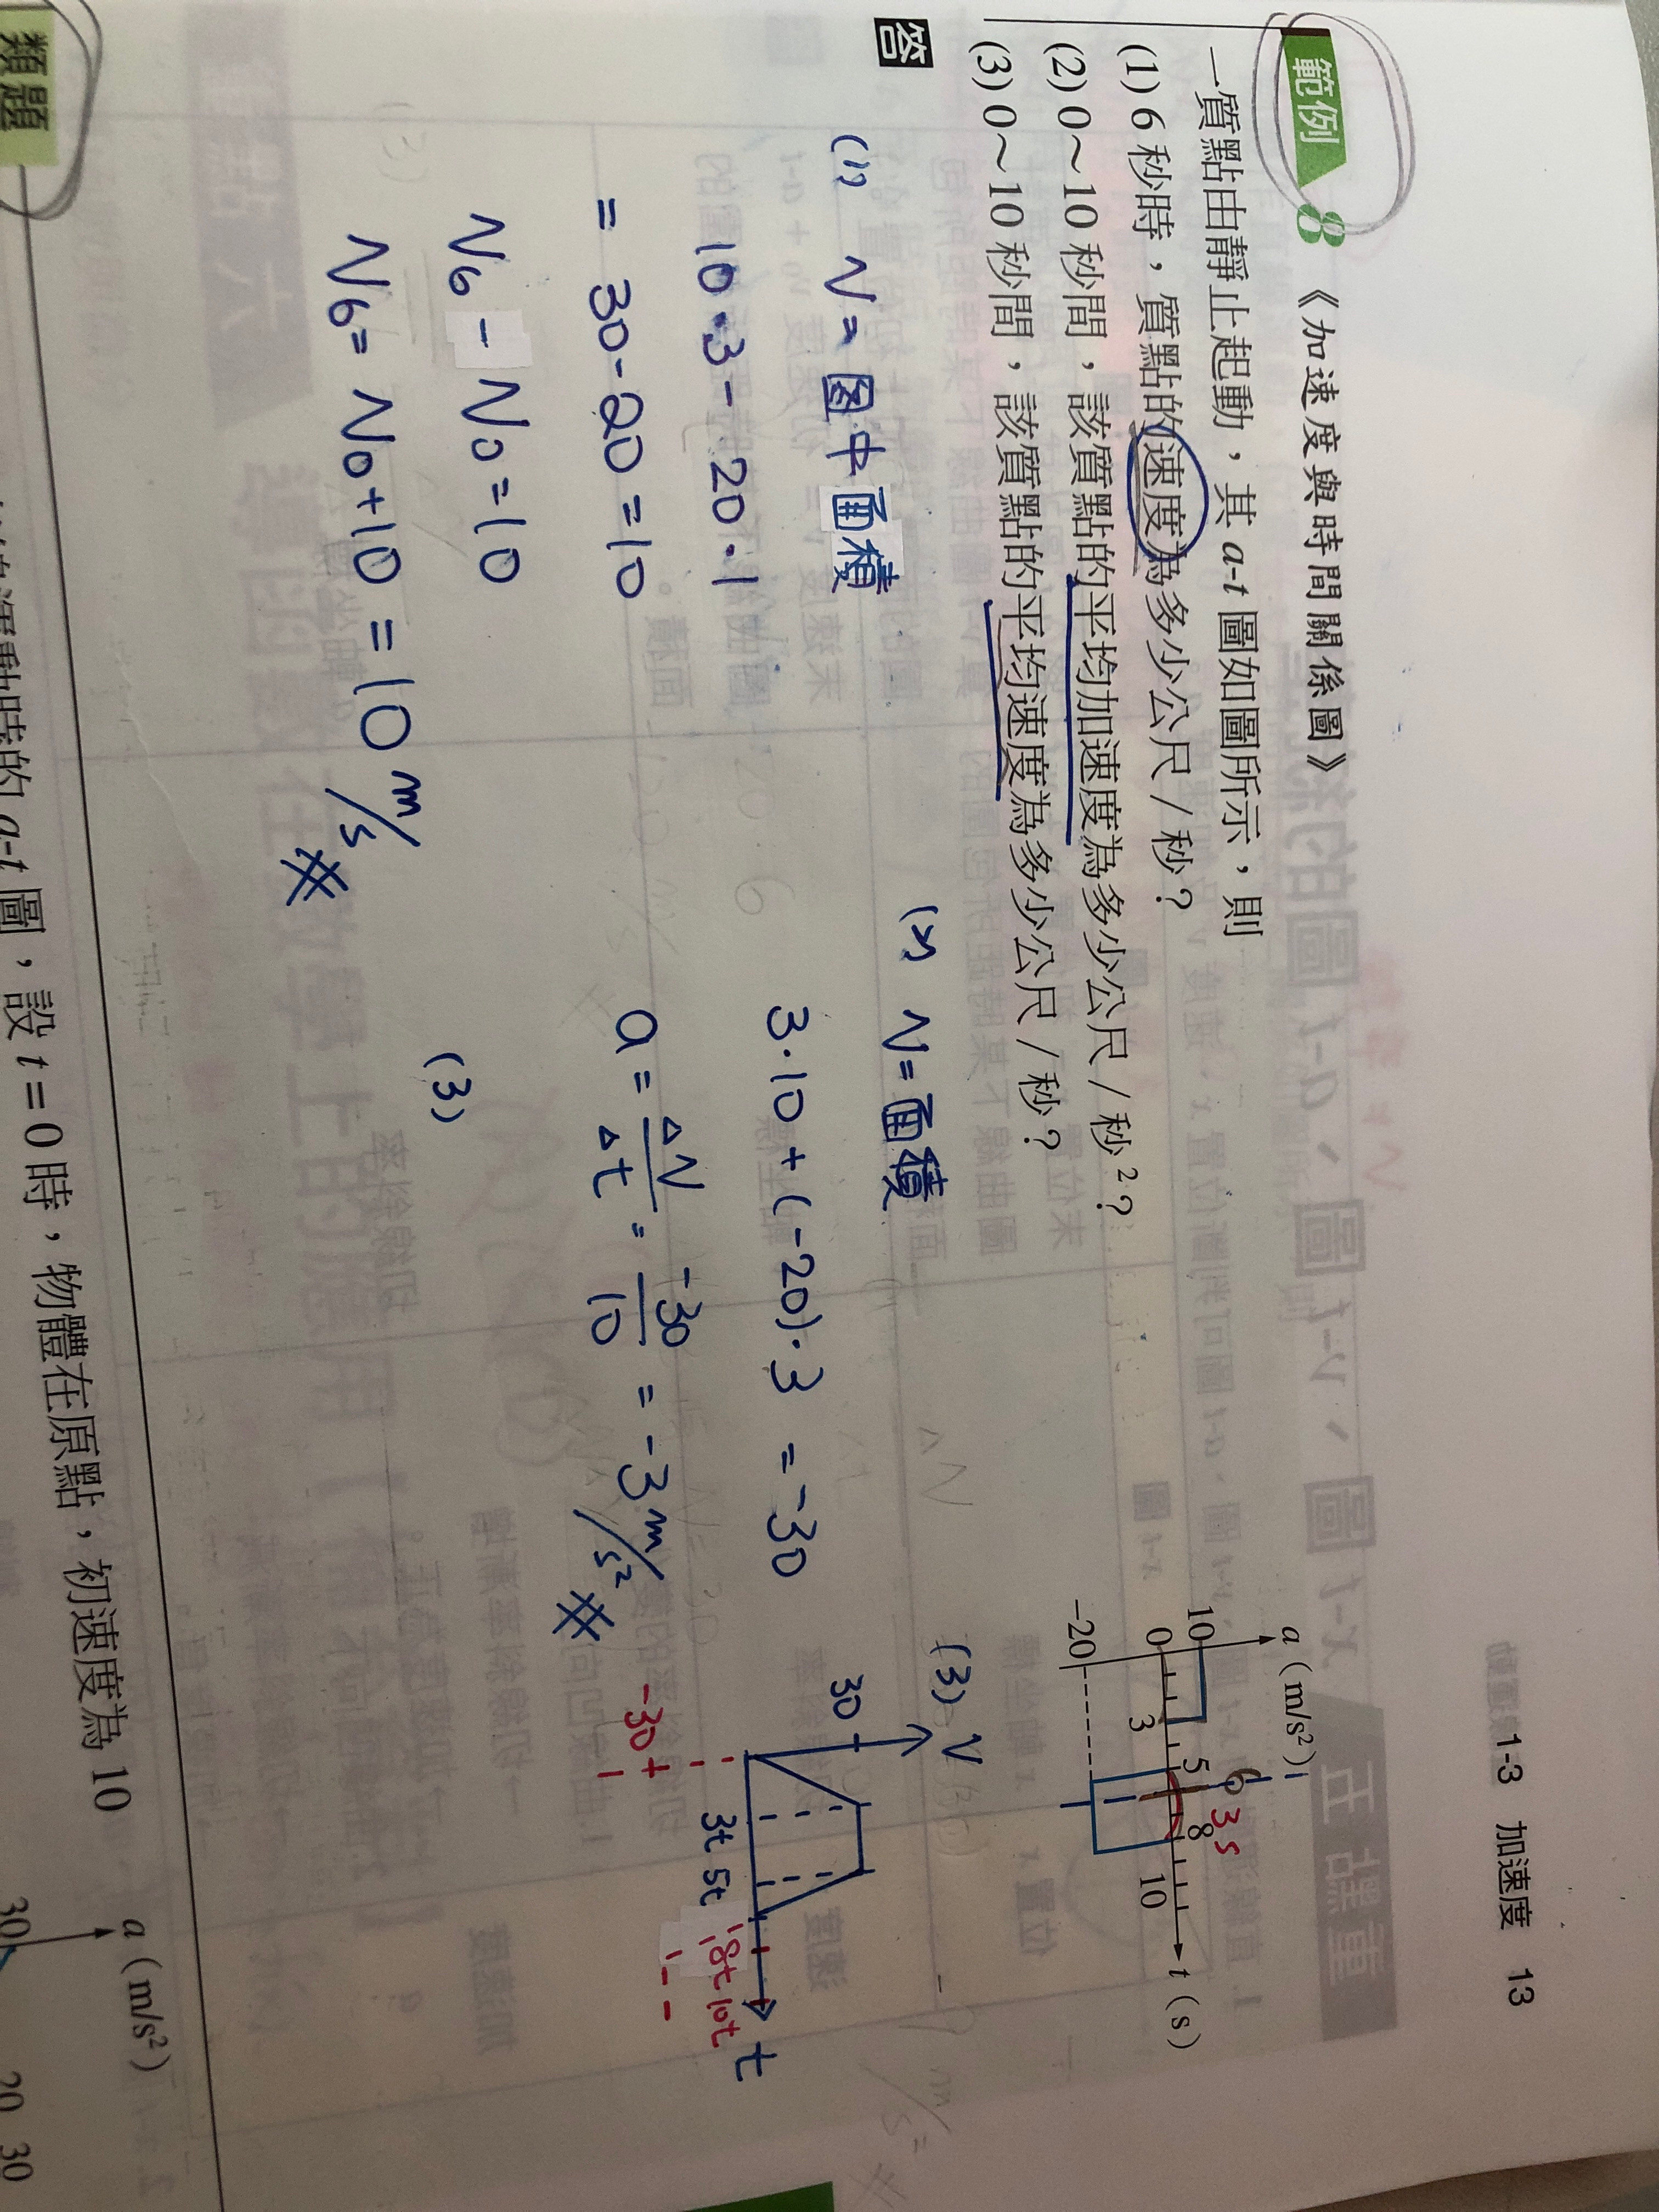 1-3 加速度 13
範例 8 《加速度與時間關係圖》
一質點由靜止起動，其 a-t 圖如圖所示，則
(1) 6 秒時，質點的速度為多少公尺／秒？
(2) 0～10 秒間，該質點的平均加速度為多少公尺／秒²？
(3) 0～10 秒間，該質點的平均速度為多少公尺／秒？
a (m/s²)
10
0
-20
3
5
6
8
10
t (s)
3s
答
(1) V = 图中面積
10·3 - 20·1
= 30 - 20 = 10
V6 - V0 = 10
V6 = V0 + 10 = 10 m/s #
(2) V = 面積
3·10 + (-20)·3 = -30
a = ΔV/Δt = -30/10 = -3 m/s² #
(3)
(3) V
30
-30
3t 5t 8t 10t
t
類題
a-t 圖，設 t = 0 時，物體在原點，初速度為 10
a (m/s²)
30
20 30